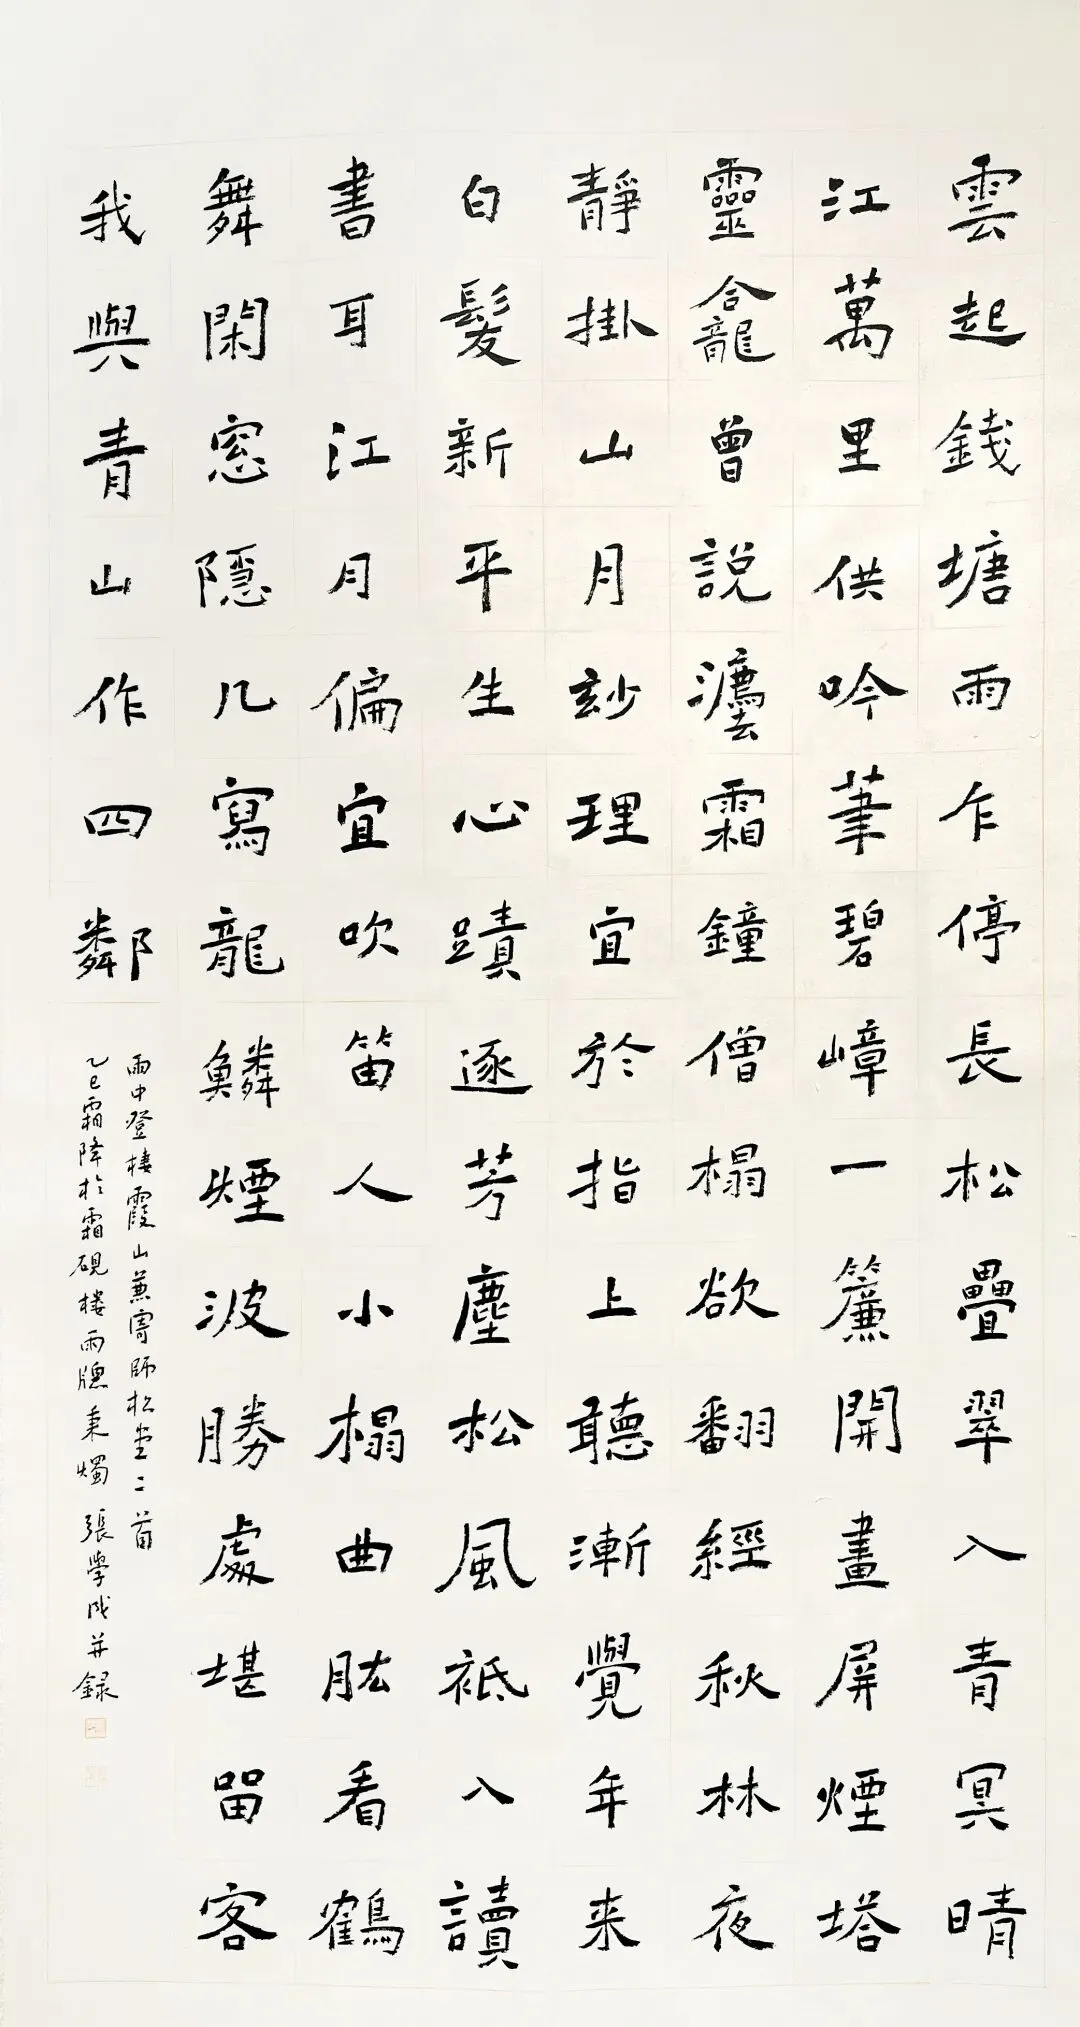 雲起錢塘雨乍停長松疊翠入青冥晴
江萬里供吟筆碧嶂一簾開畫屏煙塔
靈龕曾說灋霜鐘僧榻欲翻經秋林夜
靜掛山月玅理宜於指上聽漸覺年来
白髮新平生心蹟逐芳塵松風袛入讀
書耳江月偏宜吹笛人小榻曲肱看鶴
舞閑窓隱几寫龍鱗煙波勝處堪留客
我與青山作四鄰
雨中登棲霞山兼寄師松堂二首
乙巳霜降於霜硯楼雨牕秉燭 張學成并録